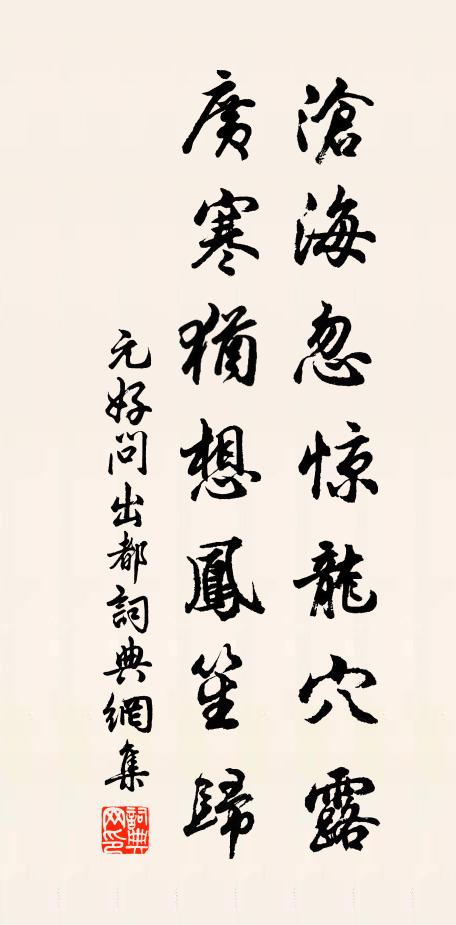 滄海忽惊龍穴露
廣寒猶想鳳笙歸
元好問出都詞典網集
詞典網印